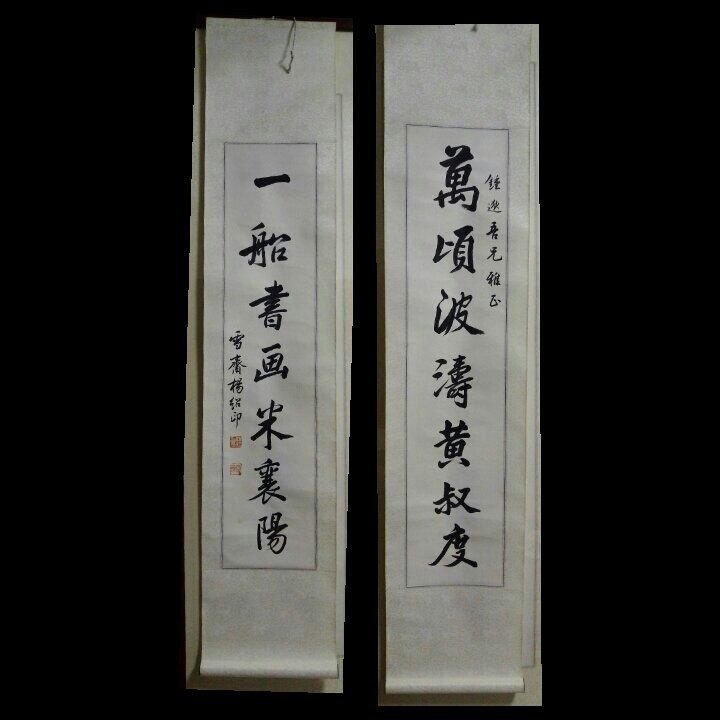 鍾遜吾兄雅正
萬頃波濤黃叔度
一船書画米襄陽
雪齋楊紹印